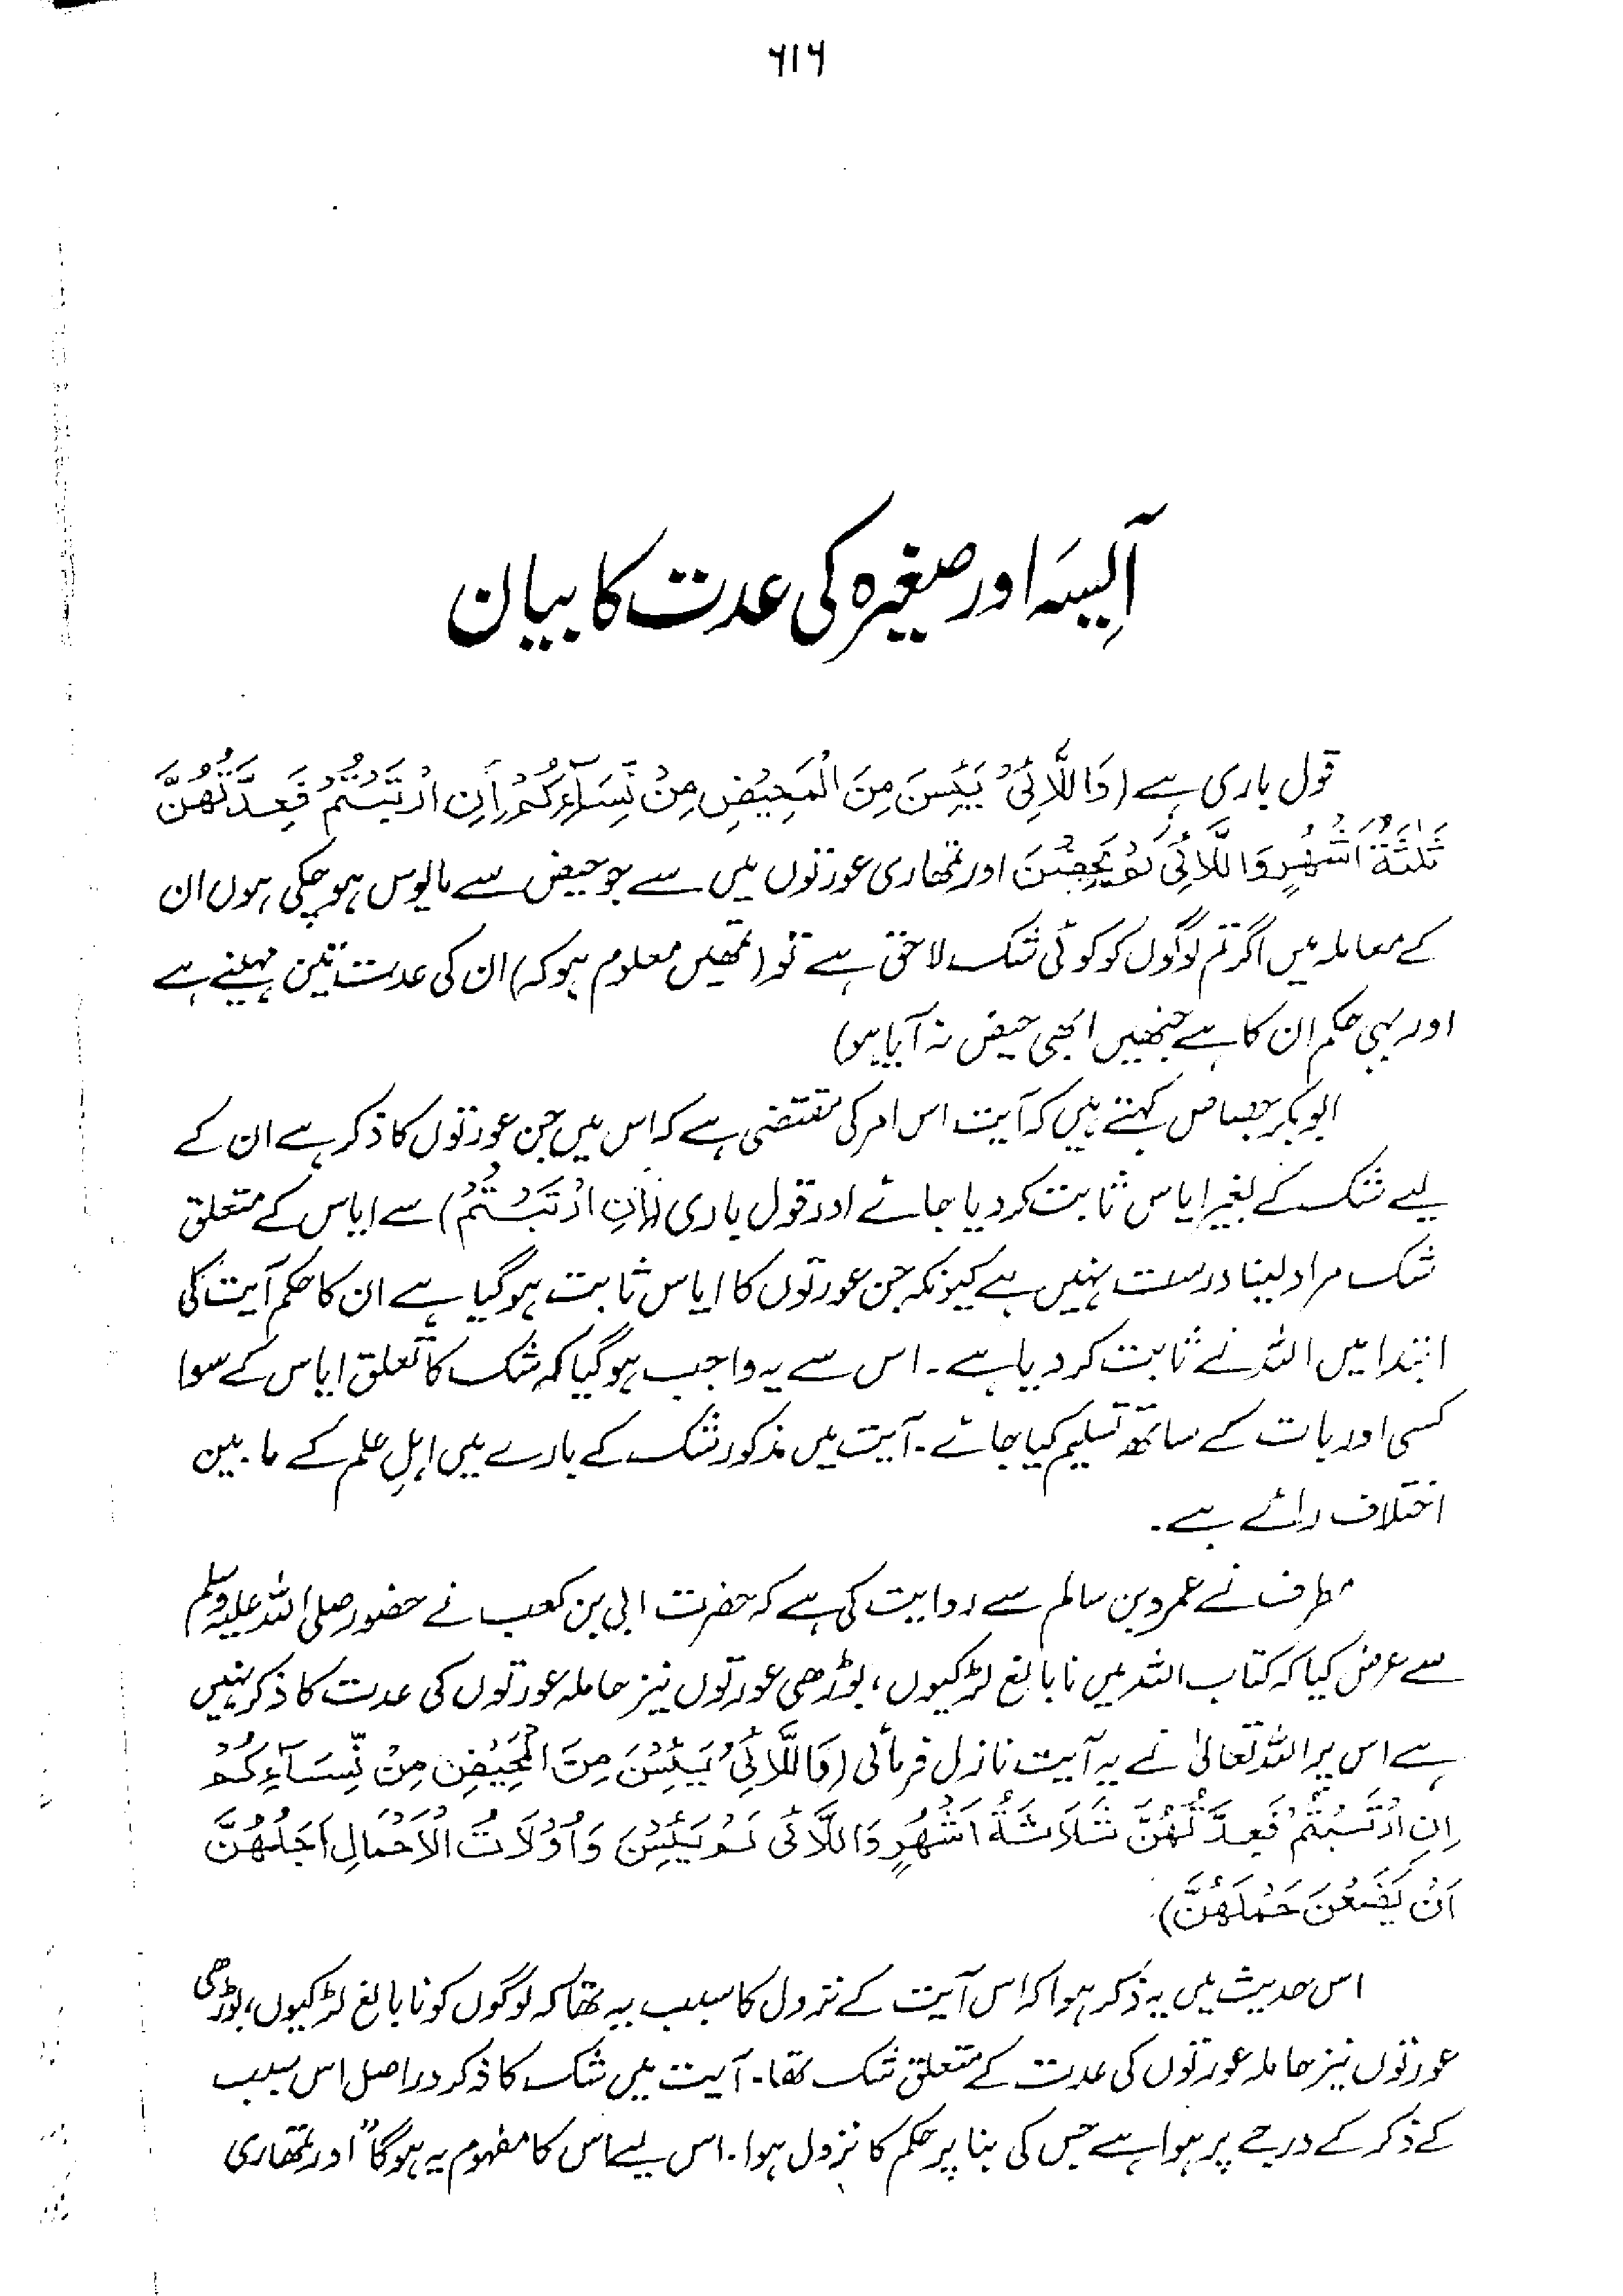 ۶۱۶
آئسہ اور صغیرہ کی عدت کا بیان
قول باری ہے (وَاللَّائِیْ یَئِسْنَ مِنَ الْمَحِیْضِ مِنْ نِّسَآءِکُمْ اِنِ ارْتَبْتُمْ فَعِدَّتُهُنَّ
ثَلٰثَةُ اَشْهُرٍ وَاللَّائِیْ لَمْ یَحِضْنَ اور تمھاری عورتوں میں سے جو حیض سے مایوس ہو چکی ہوں ان
کے معاملہ میں اگر تم لوگوں کو کوئی شک لاحق ہے تو (تمھیں معلوم ہو کہ) ان کی عدت تین مہینے ہے
اور یہی حکم ان کا ہے جنھیں ابھی حیض نہ آیا ہو)
ابوبکر جصاص کہتے ہیں کہ آیت اس امر کی مقتضی ہے کہ اس میں جن عورتوں کا ذکر ہے ان کے
لیے شک کے بغیر ایاس ثابت کر دیا جائے اور قول باری (اِنِ ارْتَبْتُمْ) سے ایاس کے متعلق
شک مراد لینا درست نہیں ہے کیونکہ جن عورتوں کا ایاس ثابت ہو گیا ہے ان کا حکم آیت کی
ابتدا میں اللہ نے ثابت کر دیا ہے۔ اس سے یہ واجب ہو گیا کہ شک کا تعلق ایاس کے سوا
کسی اور بات کے ساتھ تسلیم کیا جائے۔ آیت میں مذکور شک کے بارے میں اہلِ علم کے مابین
اختلاف رائے ہے۔
مطرف نے عمرو بن سالم سے روایت کی ہے کہ حضرت ابی بن کعب نے حضور صلی اللہ علیہ وسلم
سے عرض کیا کہ کتاب اللہ میں نابالغ لڑکیوں، بوڑھی عورتوں نیز حاملہ عورتوں کی عدت کا ذکر نہیں
ہے اس پر اللہ تعالیٰ نے یہ آیت نازل فرمائی (وَاللَّائِیْ یَئِسْنَ مِنَ الْمَحِیْضِ مِنْ نِّسَآءِکُمْ
اِنِ ارْتَبْتُمْ فَعِدَّتُهُنَّ ثَلَاثَةُ اَشْهُرٍ وَاللَّائِی لَمْ یَئِسْنَ وَاُوْلَاتُ الْاَحْمَالِ اَجَلُهُنَّ
اَنْ یَضَعْنَ حَمْلَهُنَّ)
اس حدیث میں یہ ذکر ہوا کہ اس آیت کے نزول کا سبب یہ تھا کہ لوگوں کو نابالغ لڑکیوں، بوڑھی
عورتوں نیز حاملہ عورتوں کی عدت کے متعلق شک تھا۔ آیت میں شک کا ذکر دراصل اس سبب
کے ذکر کے درجے پر ہوا ہے جس کی بنا پر حکم کا نزول ہوا۔ اس لیے اس کا مفہوم یہ ہوگا "اور تمھاری